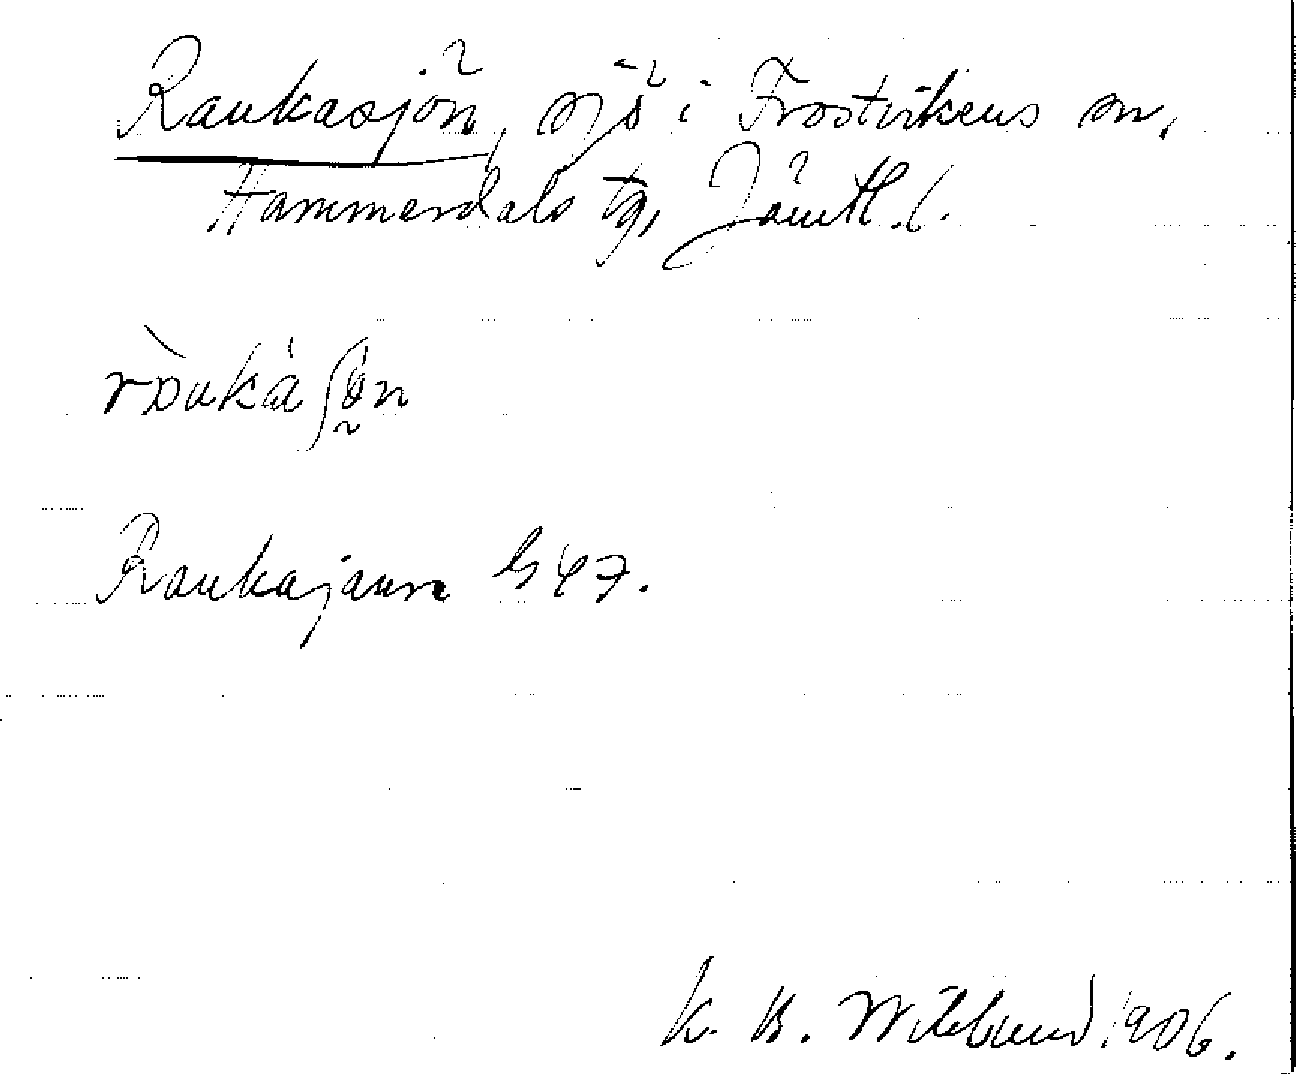 Raukasjön, sjö i Frostvikens sn,
Hammerdals tg, Jämtl. l.
Raukajaure G47.
K. B. Wiklund 1906.